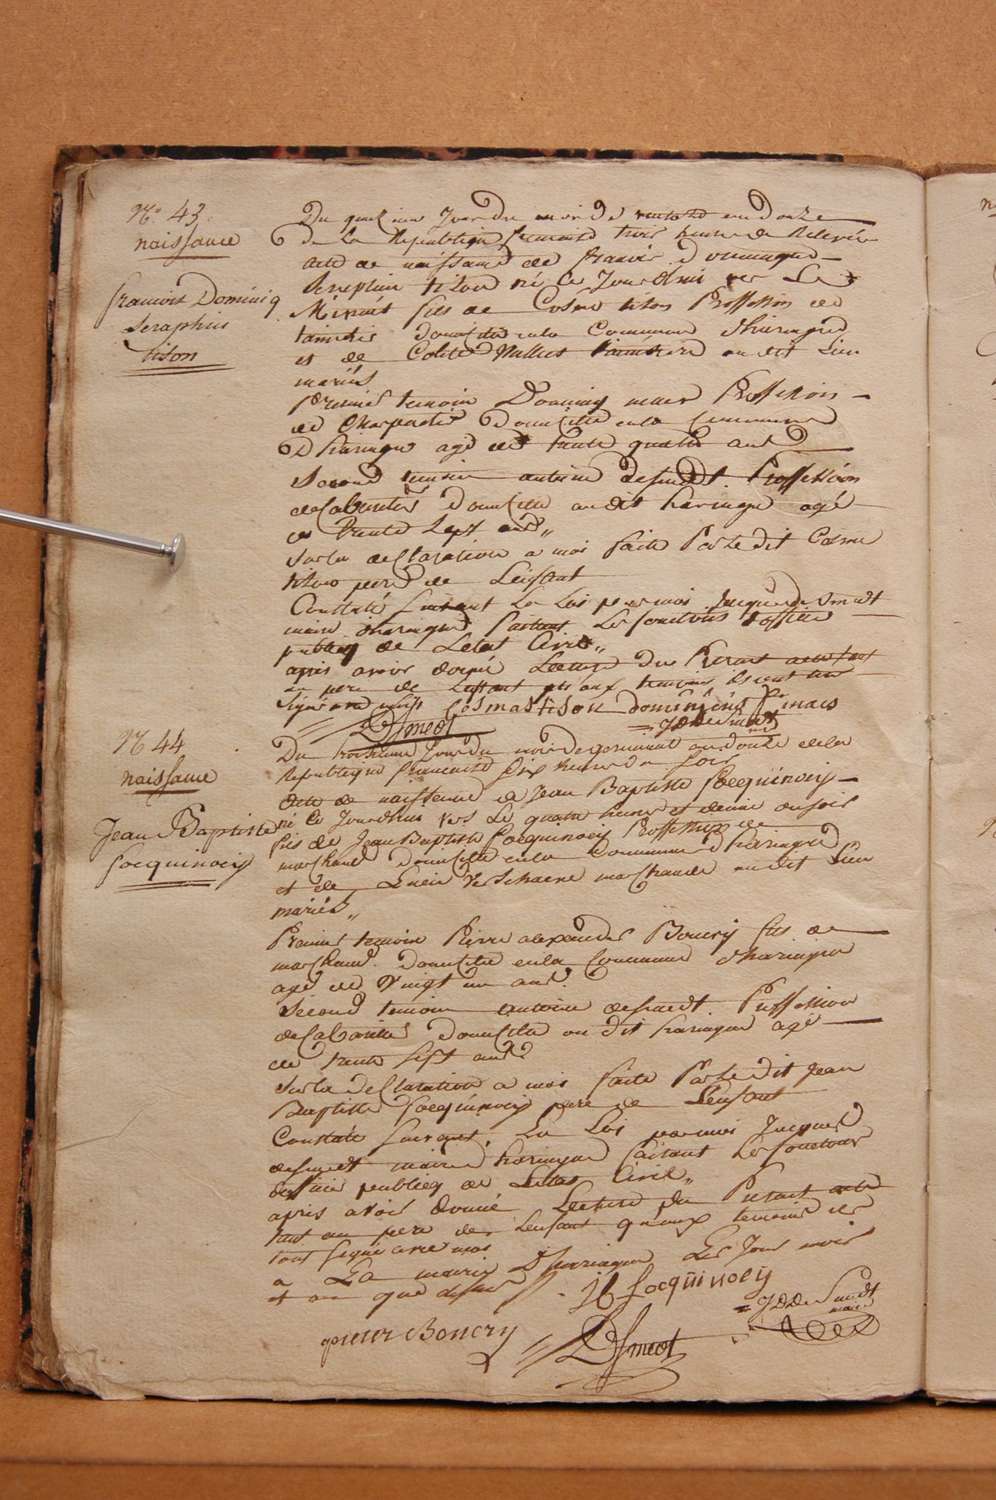 N° 43
naissance
francois Dominiq
Seraphin
tison
Du jour du mois de en Douze
De la Republique francaise trois heure de Relevée
acte de naissance de francois dominique
Seraphin tison né le Jourdhui vers Le
Minuit fils de Cosme tison Proffession de
domicilie en la Commune dharingue
et de Colette au dit Lieu
mariés
Premier temoin Dominiq mais Proffession
de Charpentier Domicilie en la Commune
Dharingue agé de trente quattre ans
Second temoin antoine desmedt Proffession
de Cabaretier Domicilie au dit haringue agé
de trente Sept ans
Sur la declaration a moi faite Par le dit Cosme
tison pere de Lenfant
Constaté Suivant La Loi par moi Jacque de Smedt
maire dharingue faisant Les fonctions dofficier
publiq de Letat Civil
apres avoir donné Lecture du Present acte tant
au pere de Lenfant qu aux temoins ils ont
Signé avec moi Cosmas tison dominicus mais
DSmedt JDDeSmedt
N° 44
naissance
Jean Baptiste
Socquinoeij
Du troisieme Jour du mois de germinal an douze de la
Republique francaise Six heure du Soir
Acte de naissance de Jean Baptiste Socquinoeij
né le Jourdhui vers Les quatre heures et demie du soir
fils de Jean Baptiste Socquinoeij Proffession de
marchand Domicilie en la Commune dharingue
et de Verschaeve marchande au dit Lieu
mariés
Premier temoin Pierre alexandre Boucry fils de
marchand Domicilie en la Commune dharingue
agé de Vingt un ans
Second temoin antoine desmedt Proffession
de Cabaretier Domicilie au dit haringue agé
de trente Sept ans
Sur la declaration a moi faite Par le dit Jean
Baptiste Socquinoeij pere de Lenfant
Constaté Suivant La Loi par moi Jacque
desmedt maire haringue faisant Les fonctions
dofficier publieq de Letat Civil
apres avoir donné Lecture du Present acte
tant au pere de Lenfant qu'aux temoins ils
tous Signé avec moi
a La mairie Dharingue Les Jour mois
et an que dessus
JB Socquinoeij
JDDeSmedt
maire
pieter Boucry
DSmedt